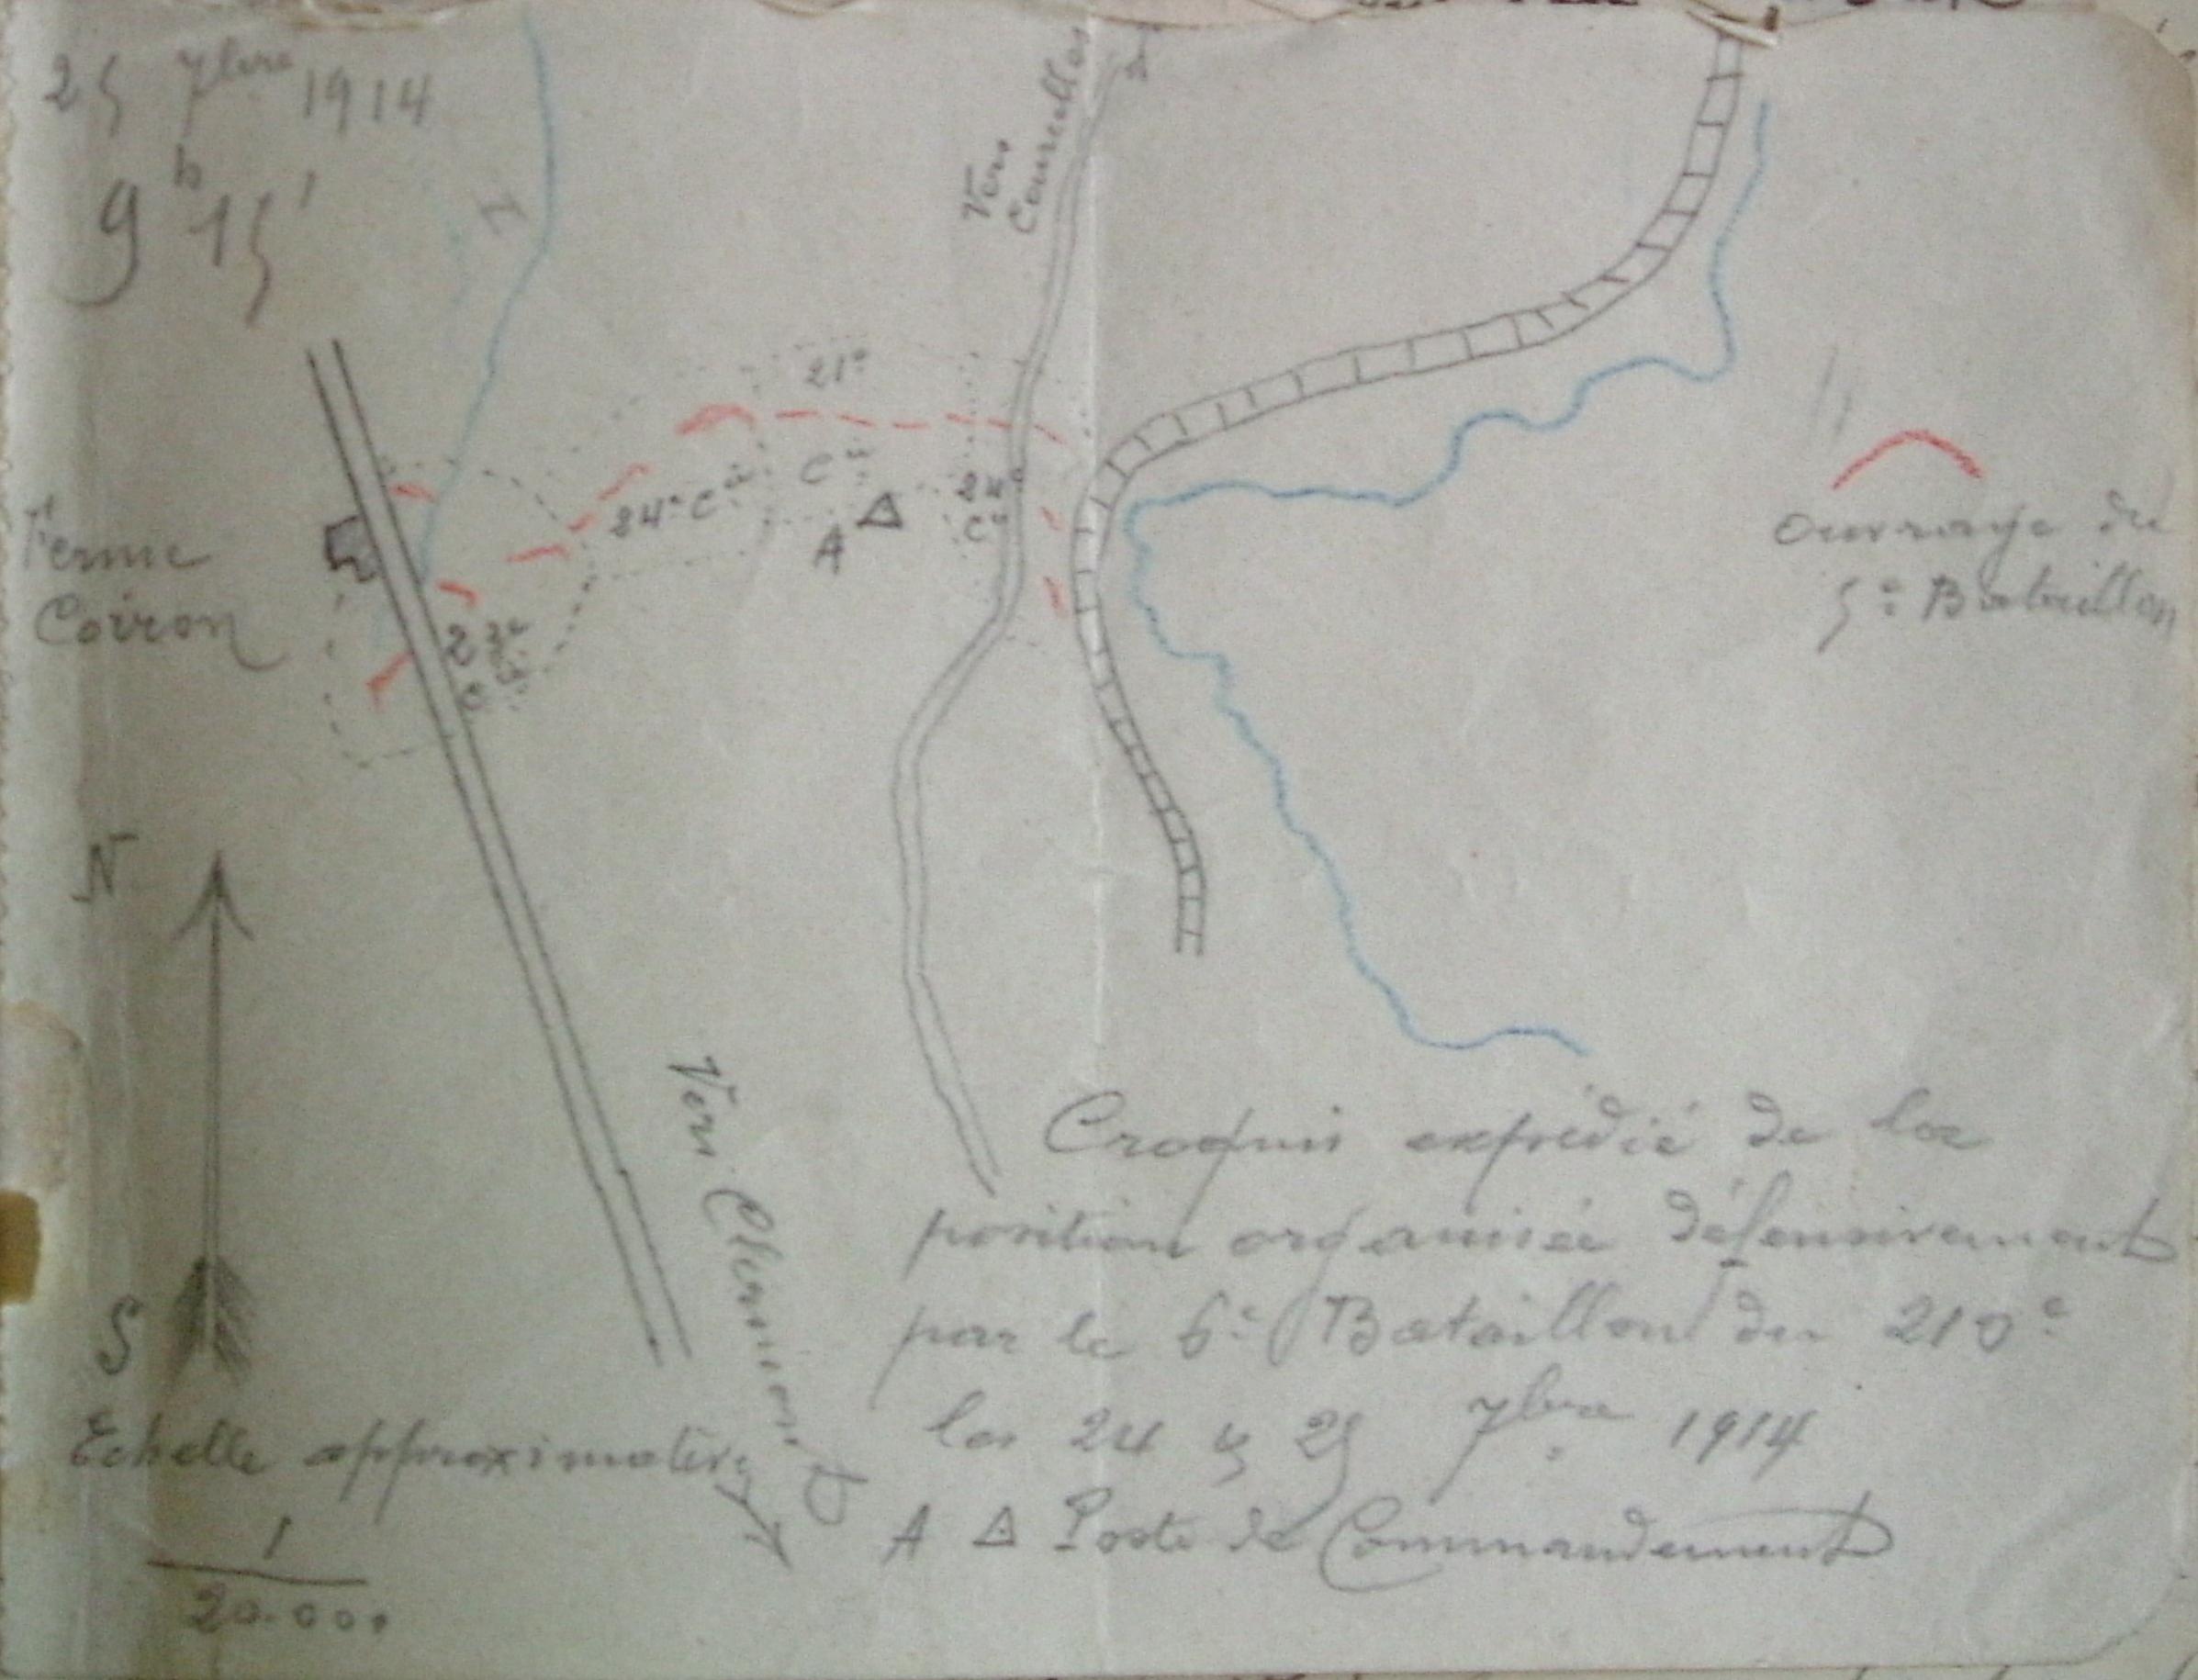 25 7bre 1914
9h 15'
Vers
Courcelles
21e
Cie
24e Cie
24e
Cie
A
Ferme
Coiron
23e
Cie
Ouvrage du
5e Bataillon
N
S
Vers Clermont
Croquis expédié de la
position organisée défensivement
par le 6e Bataillon du 210e
les 24 & 25 7bre 1914
A Δ Poste de Commandement
Echelle approximative
1
20.000